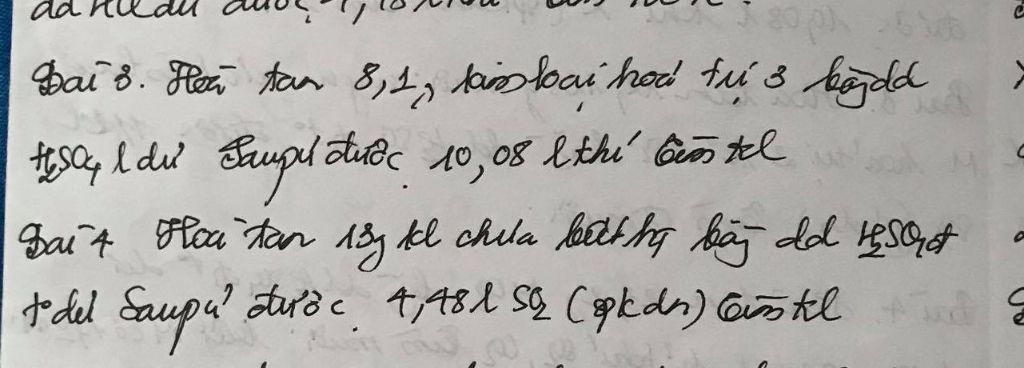 dd HCl dư được
Bài 3. Hoà tan 8,1g kim loại hoá trị 3 bằg dd
H₂SO₄ l dư Saupứ được 10,08 l khí tìm kl
Bài 4 Hoà tan 13g kl chưa biết htrị bằg dd H₂SO₄ đ
t° dư Saupứ được 4,48 l SO₂ (spk dn) tìm kl